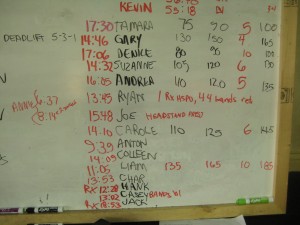 KEVIN
55:18
DEADLIFT 5-3-1
17:30 TAMARA 75 90 5 100
14:46 GARY 130 150 4 165
17:06 DENICE 80 90 10
14:32 SUZANNE 105 120 6 130
16:05 ANDREA 110 120 5 135
13:45 RYAN / RX HSPD, 44
6:37
15:48 JOE HEADSTAND
14:10 CAROLE 110 125 6
9:39 ANTON
14:09 COLLEEN
11:05 LIAM 135 165 10 185
13:53 CHAR
RX 12:28 HANK
13:02 CASEY BANDS
RX 13:53 JACK